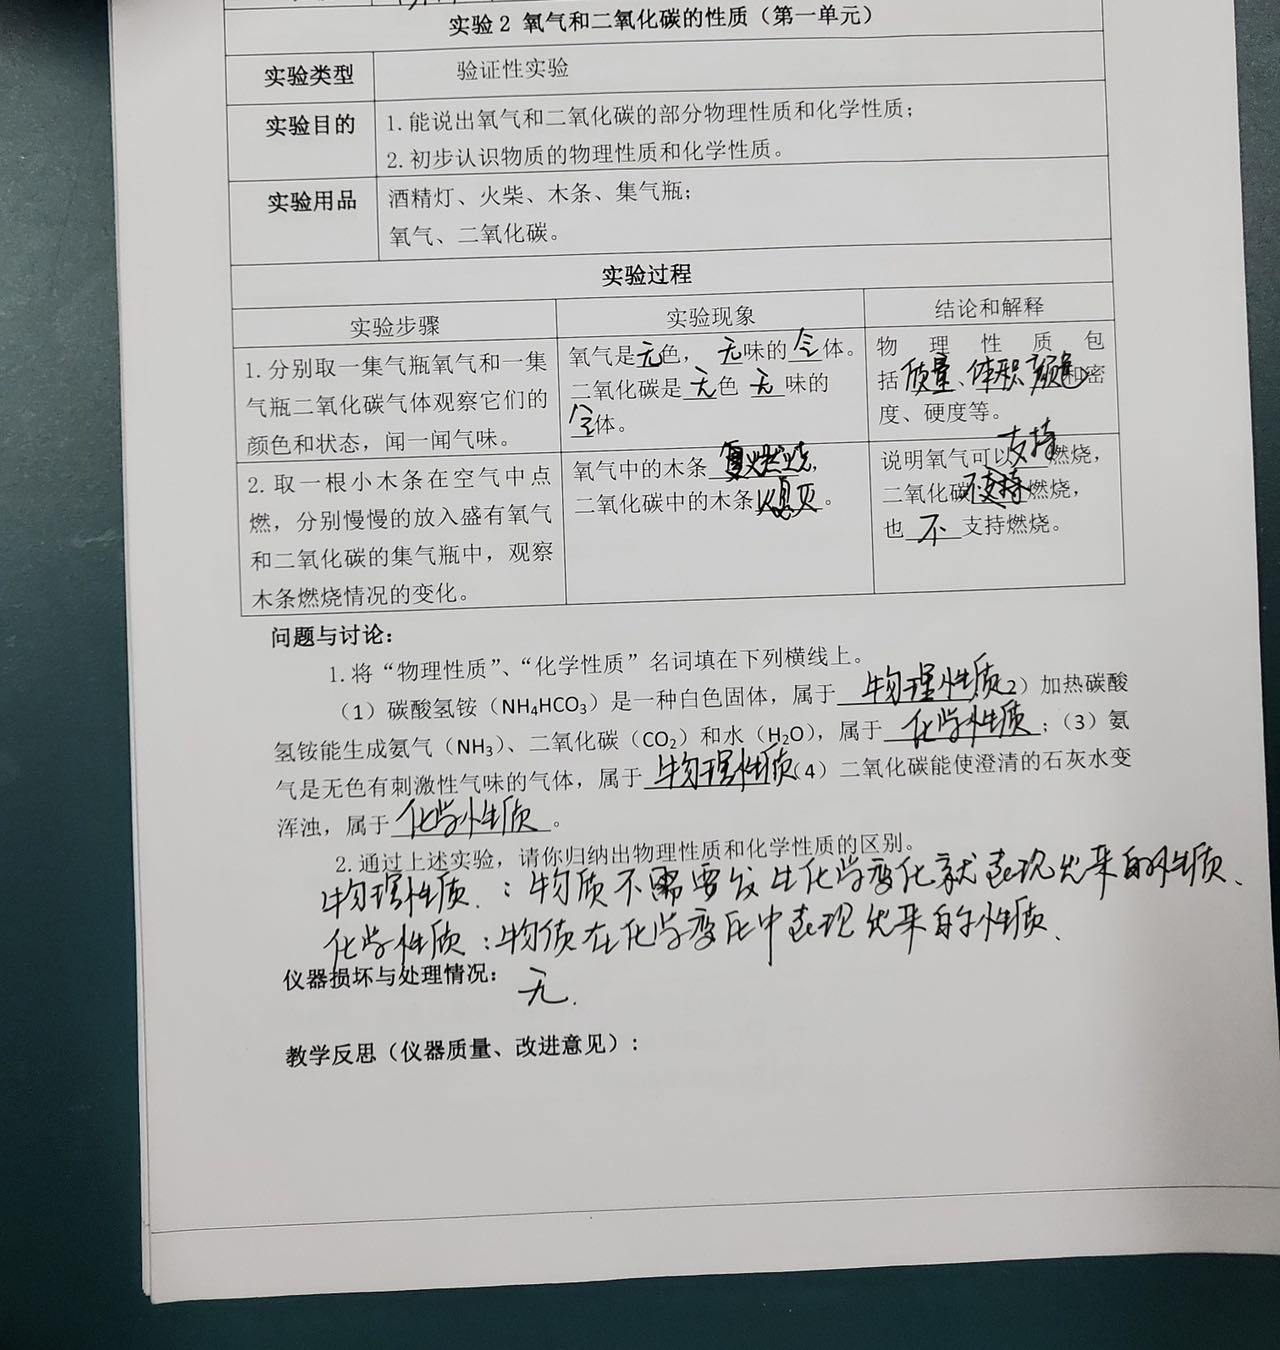 实验2 氧气和二氧化碳的性质（第一单元）
实验类型 验证性实验
实验目的 1.能说出氧气和二氧化碳的部分物理性质和化学性质；
2.初步认识物质的物理性质和化学性质。
实验用品 酒精灯、火柴、木条、集气瓶；
氧气、二氧化碳。
实验过程
实验步骤 实验现象 结论和解释
1.分别取一集气瓶氧气和一集
气瓶二氧化碳气体观察它们的
颜色和状态，闻一闻气味。
氧气是无色，无味的气体。
二氧化碳是无色 无味的
气体。
物理性质包
括质量、体积 颜色和密
度、硬度等。
2.取一根小木条在空气中点
燃，分别慢慢的放入盛有氧气
和二氧化碳的集气瓶中，观察
木条燃烧情况的变化。
氧气中的木条复燃烧，
二氧化碳中的木条熄灭。
说明氧气可以支持燃烧，
二氧化碳不支持燃烧，
也不支持燃烧。
问题与讨论：
1.将“物理性质”、“化学性质”名词填在下列横线上。
（1）碳酸氢铵（NH₄HCO₃）是一种白色固体，属于 物理性质 2）加热碳酸
氢铵能生成氨气（NH₃）、二氧化碳（CO₂）和水（H₂O），属于 化学性质；（3）氨
气是无色有刺激性气味的气体，属于 物理性质（4）二氧化碳能使澄清的石灰水变
浑浊，属于 化学性质。
2.通过上述实验，请你归纳出物理性质和化学性质的区别。
物理性质：物质不需要发生化学变化就表现出来的性质、
化学性质：物质在化学变化中表现出来的性质、
仪器损坏与处理情况： 无.
教学反思（仪器质量、改进意见）：